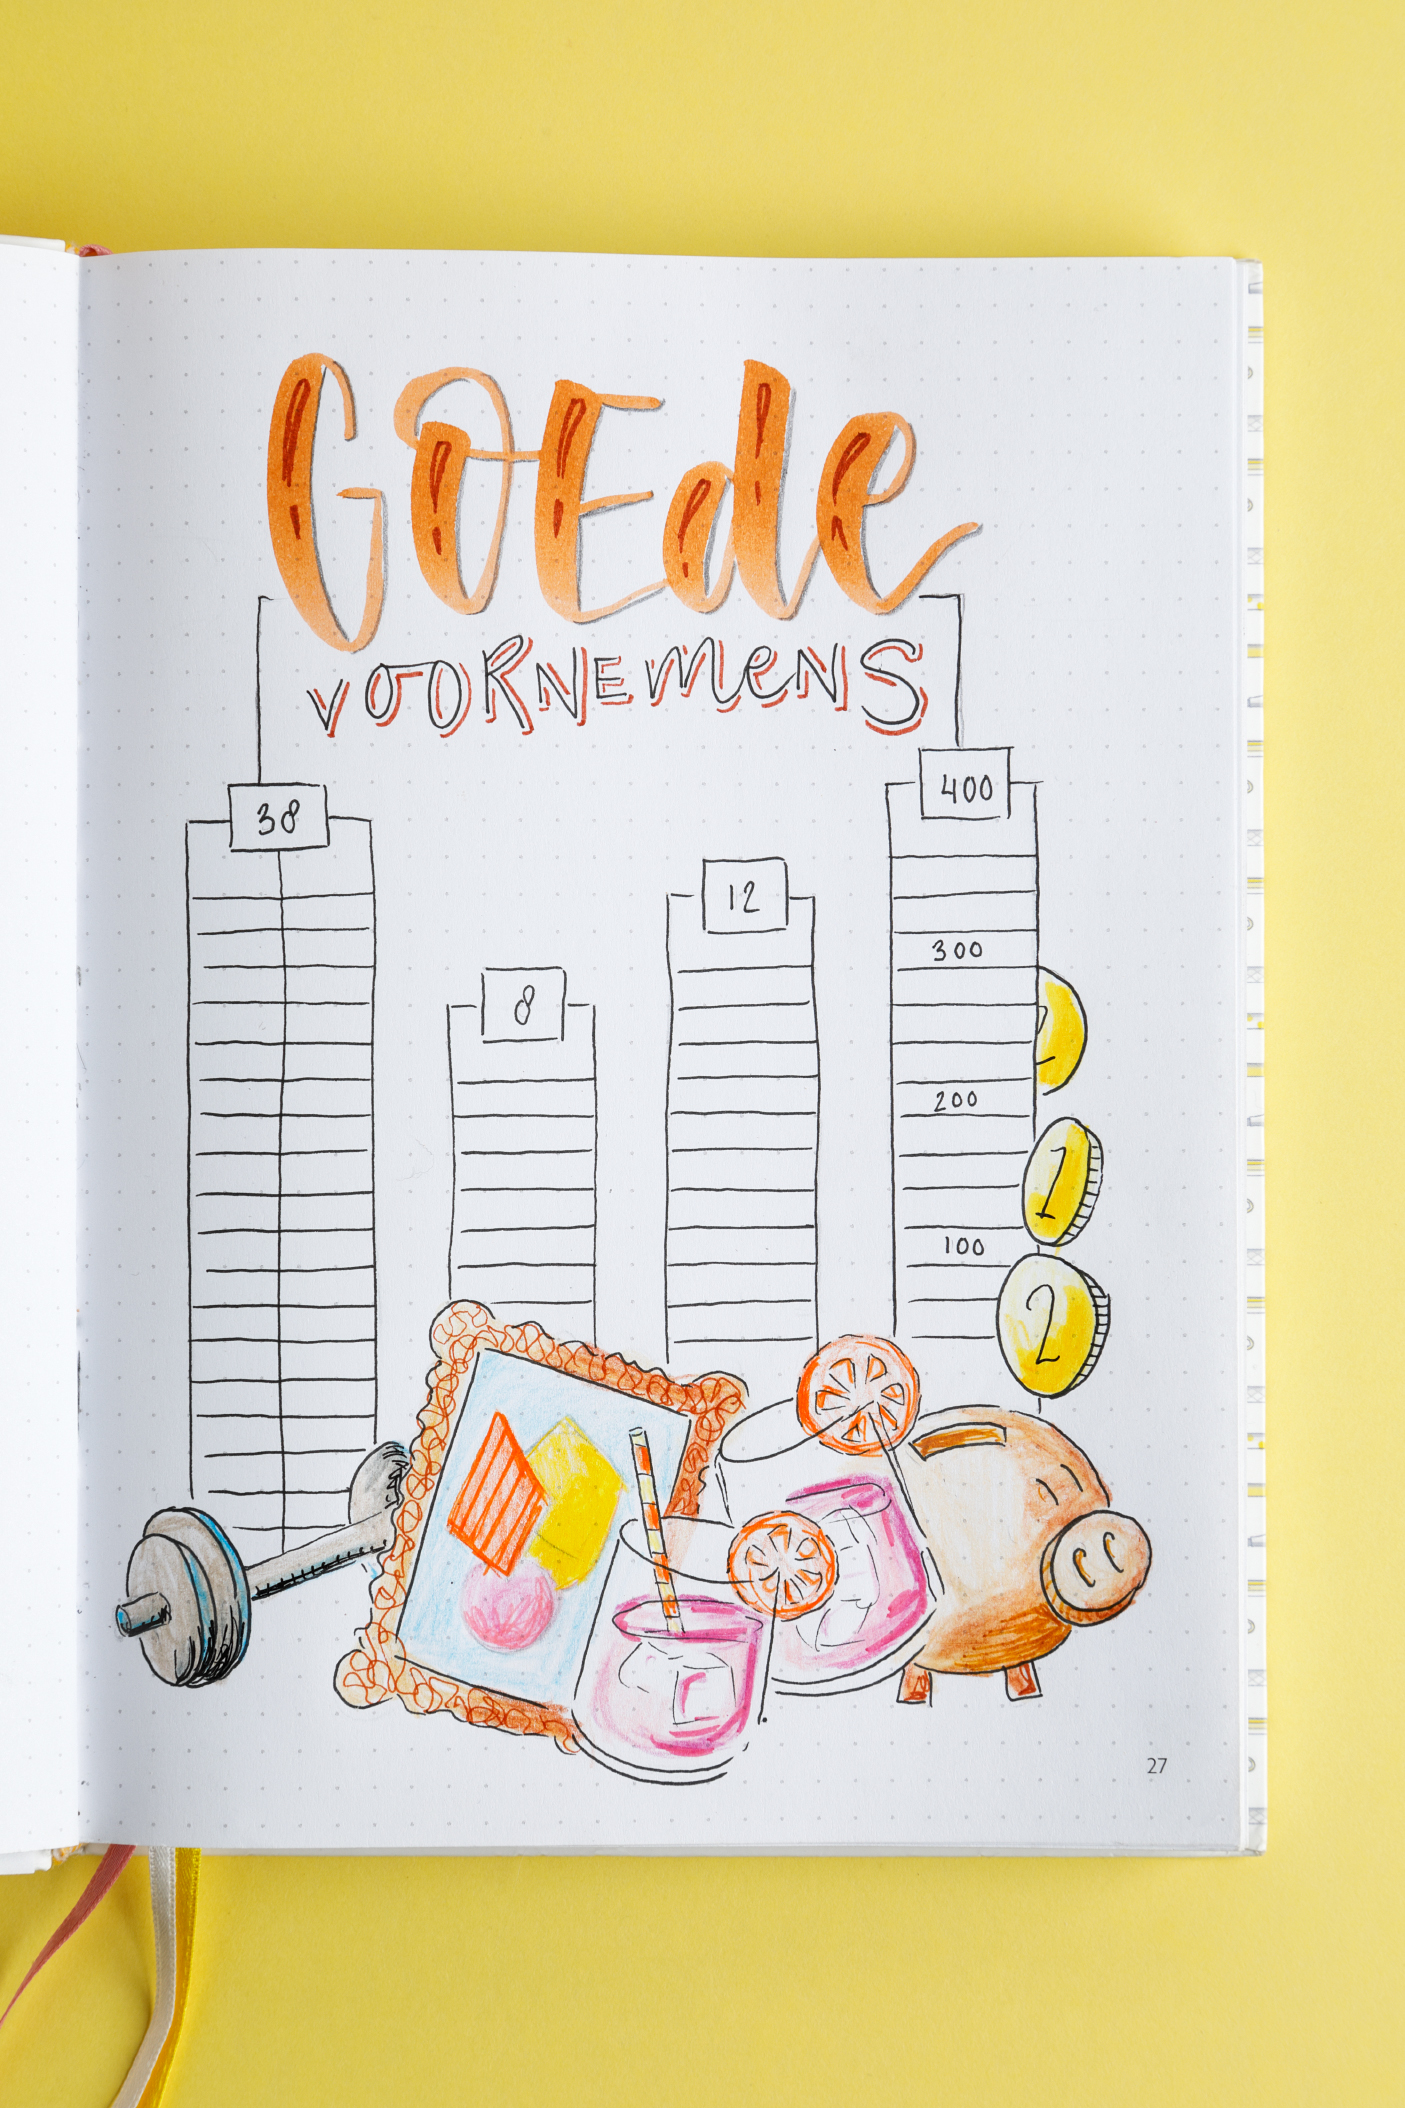 GOEde
VOORNEMENS
400
38
12
300
8
200
1
100
2
27